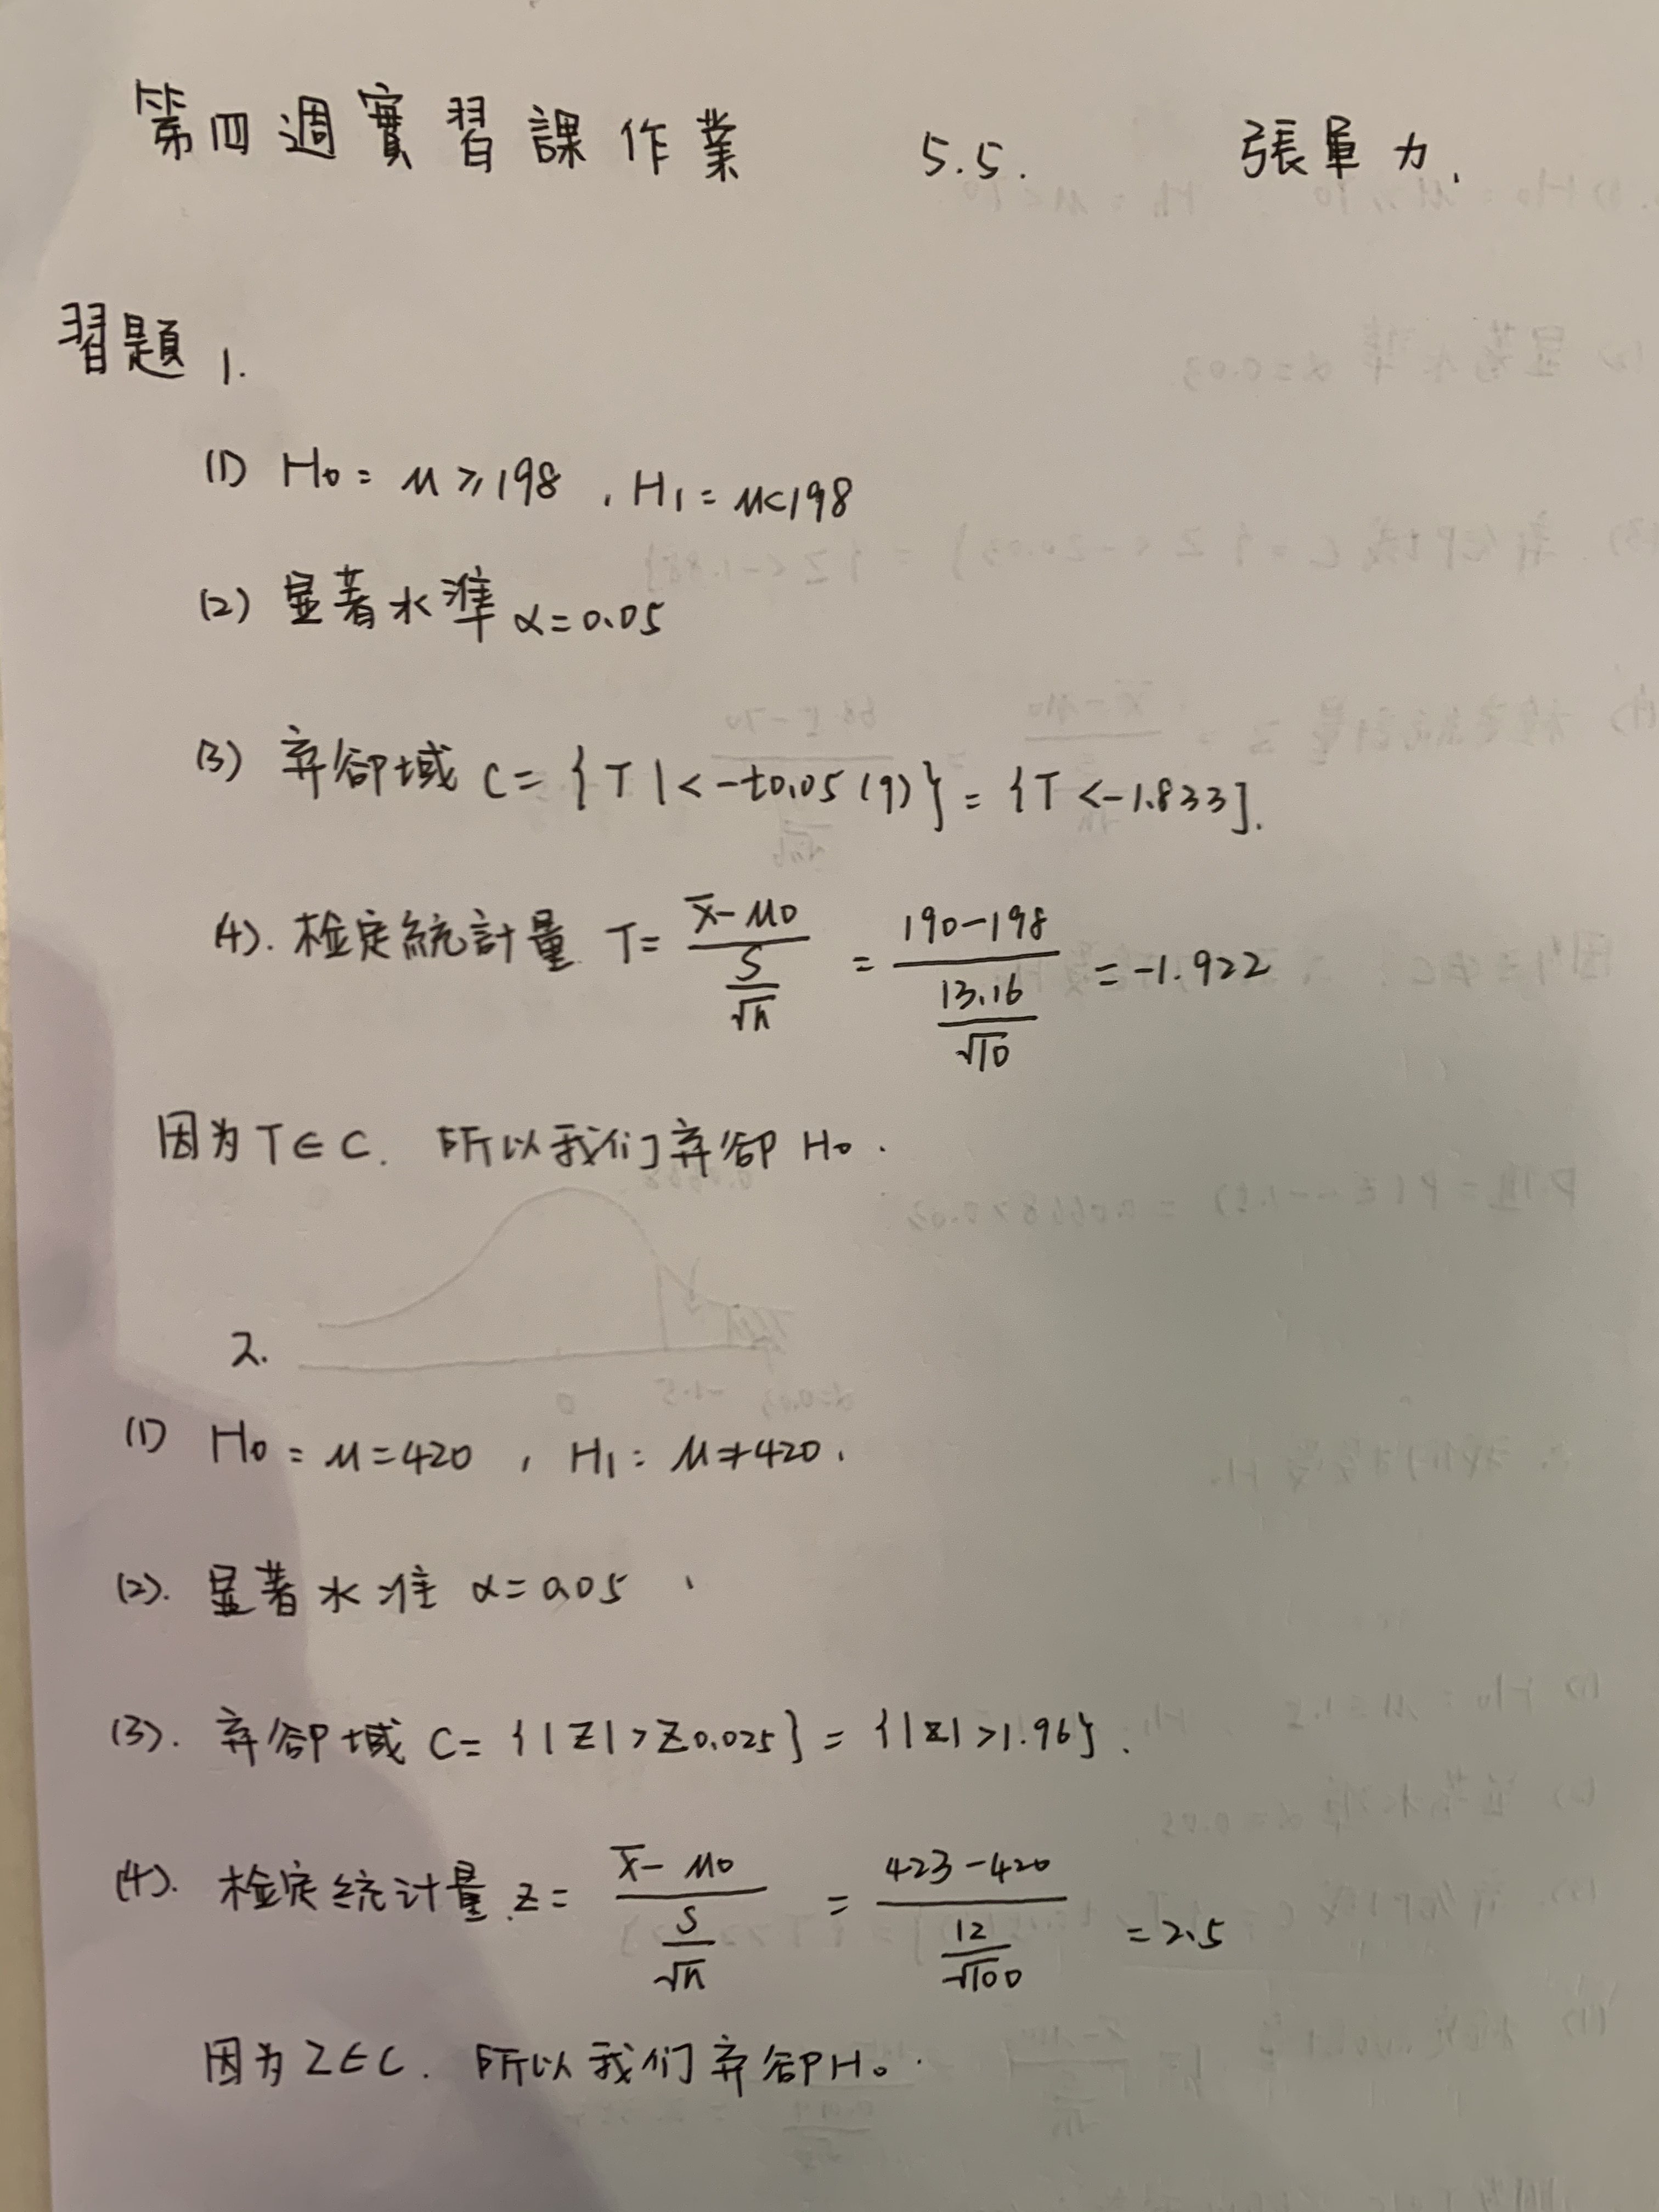 第四週實習課作業 5.5. 張軍力.
習題 1.
(1) H₀ = μ ≥ 198 , H₁ = μ < 198
(2) 显著水準 α = 0.05
(3) 弃卻域 C = {T | < -t0.05 (9)} = {T < -1.833].
(4). 檢定統計量 T = (x̄ - μ0) / (S / √n) = (190 - 198) / (13.16 / √10) = -1.922
因为 T ∈ C. 所以我们弃卻 H₀.
2.
(1) H₀ = μ = 420 , H₁ : μ ≠ 420 .
(2). 显著水准 α = 0.05 .
(3). 弃卻域 C = {|Z| > Z0.025} = {|Z| > 1.96} .
(4). 检定统计量 Z = (x̄ - μ0) / (S / √n) = (423 - 420) / (12 / √100) = 2.5
因为 Z ∈ C. 所以我们弃卻 H₀.